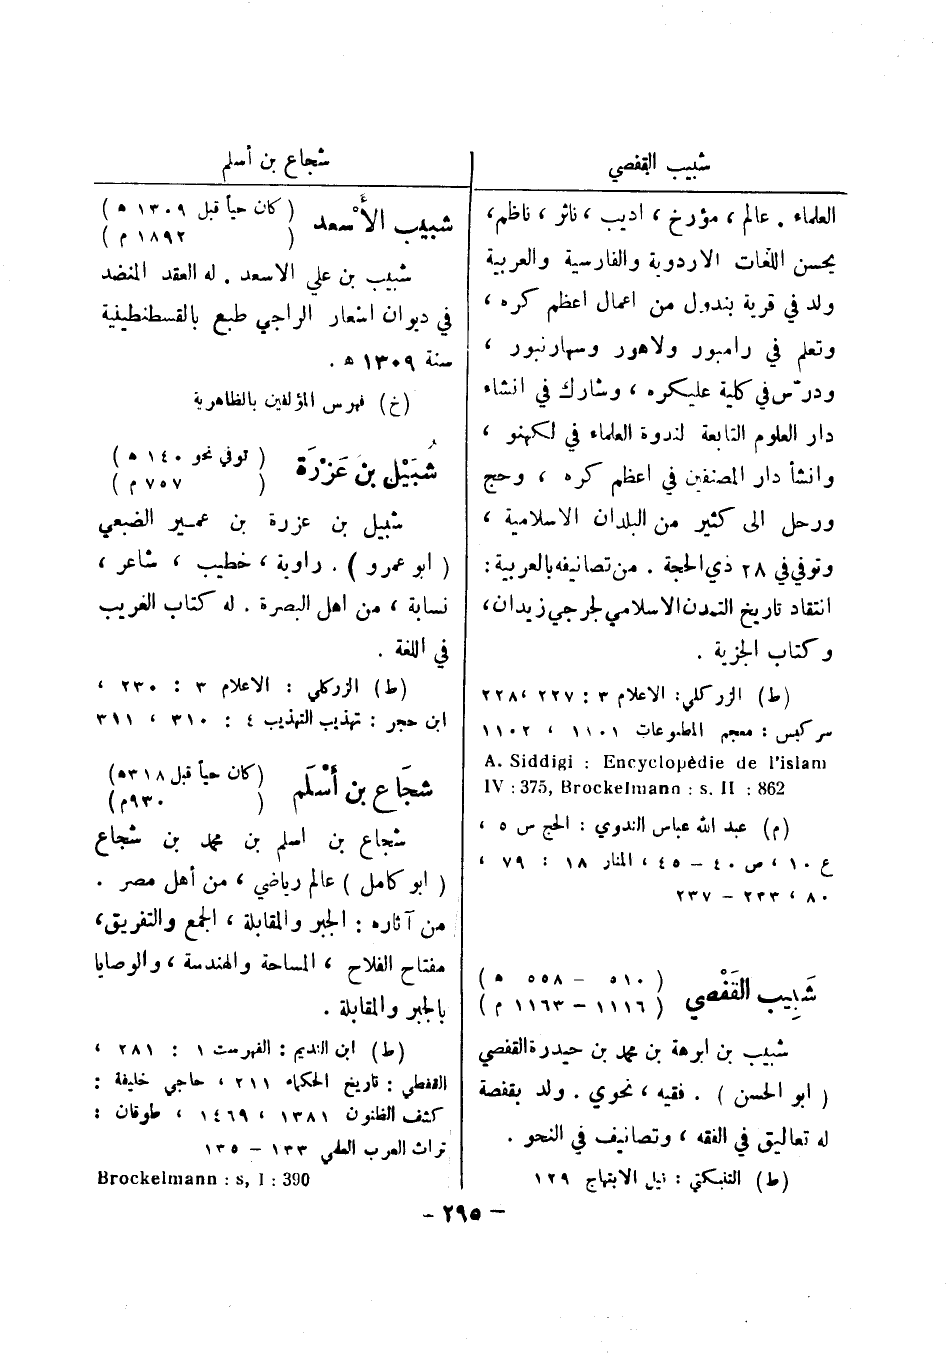 شبيب القفصي
العلماء . عالم ، مؤرخ ، اديب ، ناثر ، ناظم،
يحسن اللغات الاردوية والفارسية والعربية
ولد في قرية بندول من اعمال اعظم كره ،
وتعلم في رامبور ولاهور وسهارنبور ،
ودرّس في كلية عليكره ، وشارك في انشاء
دار العلوم التابعة لندوة العلماء في لكهنو ،
وانشأ دار المصنفين في اعظم كره ، وحج
ورحل الى كثير من البلدان الاسلامية ،
وتوفي في ٢٨ ذي الحجة . من تصانيفه بالعربية :
انتقاد تاريخ التمدن الاسلامي لجرجي زيدان،
وكتاب الجزية .
(ط) الزركلي: الاعلام ٣ : ٢٢٧ ،٢٢٨
سركيس : معجم المطبوعات ١١٠١ ، ١١٠٢
A. Siddigi : Encyclopèdie de l'islam
IV : 375, Brockelmann : s. II : 862
(م) عبد الله عباس الندوي : الحج س ٥ ،
ع ١٠ ، ص ٤٠ – ٤٥ ، المنار ١٨ : ٧٩ ،
٨٠ ، ٢٣٣ – ٢٣٧
شَبِيب القَفْصي
( ٥١٠ – ٥٥٨ ه )
( ١١١٦ – ١١٦٣ م )
شبيب بن ابرهة بن محمد بن حيدرة القفصي
( ابو الحسن ) . فقيه ، نحوي . ولد بقفصة
له تعاليق في الفقه ، وتصانيف في النحو .
(ط) التنبكتي : نيل الابتهاج ١٢٩
شجاع بن أسلم
شبيب الأَسْعد
( كان حياً قبل ١٣٠٩ ه )
( ١٨٩٢ م )
شبيب بن علي الاسعد . له العقد المنضد
في ديوان اشعار الراجي طبع بالقسطنطينية
سنة ١٣٠٩ ه .
(خ) فهرس المؤلفين بالظاهرية
شُبَيْل بن عَزْرَة
( توفي نحو ١٤٠ ه )
( ٧٥٧ م )
شبيل بن عزرة بن عمير الضبعي
( ابو عمرو ) . راوية ، خطيب ، شاعر ،
نسابة ، من اهل البصرة . له كتاب الغريب
في اللغة .
(ط) الزركلي : الاعلام ٣ : ٢٣٠ ،
ابن حجر : تهذيب التهذيب ٤ : ٣١٠ ، ٣١١
شجَاع بن أسْلَم
(كان حياً قبل ٣١٨ه)
( ٩٣٠م)
شجاع بن اسلم بن محمد بن شجاع
( ابو كامل ) عالم رياضي ، من أهل مصر .
من آثاره : الجبر والمقابلة ، الجمع والتفريق،
مفتاح الفلاح ، المساحة والهندسة ، والوصايا
بالجبر والمقابلة .
(ط) ابن النديم : الفهرست ١ : ٢٨١ ،
القفطي : تاريخ الحكماء ٢١١ ، حاجي خليفة :
كشف الظنون ١٣٨١ ، ١٤٦٩ ، طوقان :
تراث العرب العلمي ١٣٣ – ١٣٥
Brockelmann : s, I : 390
– ٢٩٥ –